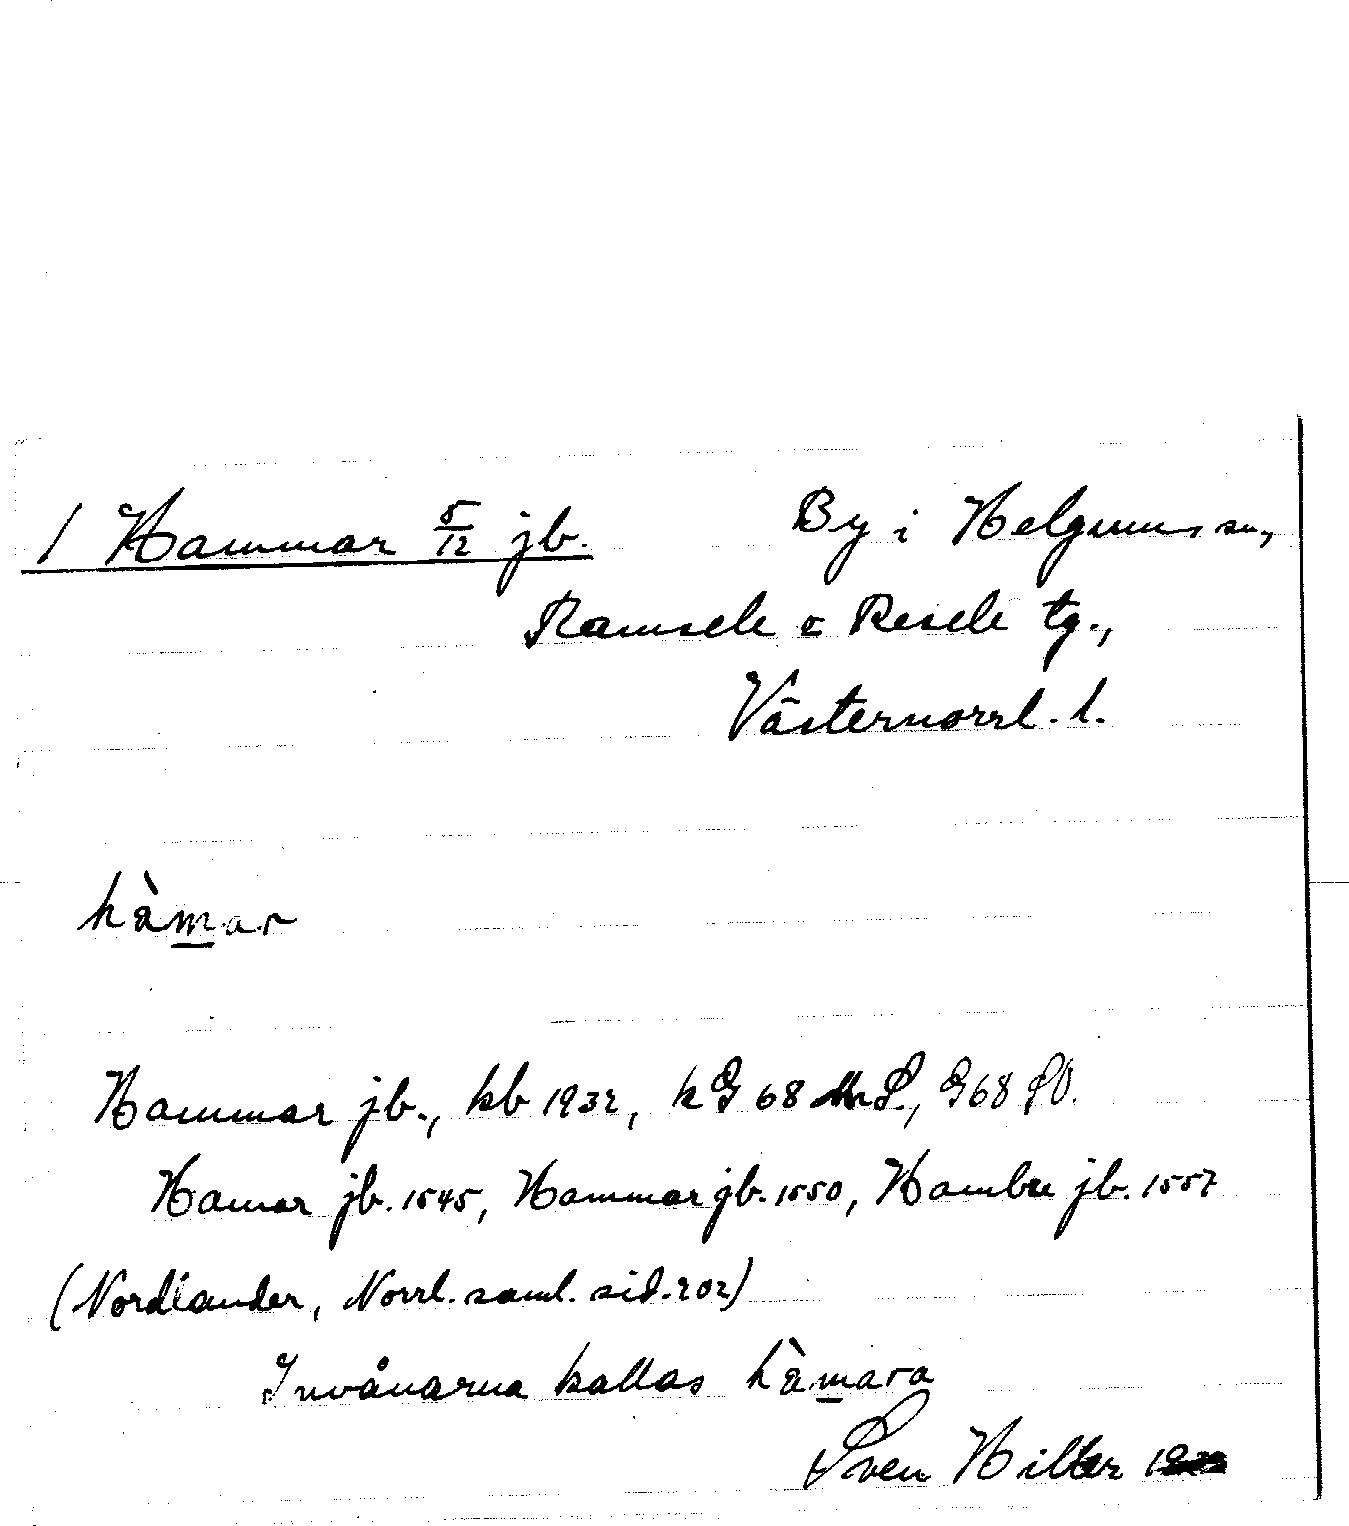 1 Hammar 5/12 jb. By i Helgums sn,
Ramsele o Resele tg.,
Västernorrl. l.
hàmar
Hammar jb., kb 1932, kG 68 S., G68 SO.
Hamar jb. 1545, Hammar jb. 1550, Hambre jb. 1557
(Nordlander, Norrl. saml. sid. 202)
Invånarna kallas hàmara
Sven Hiller